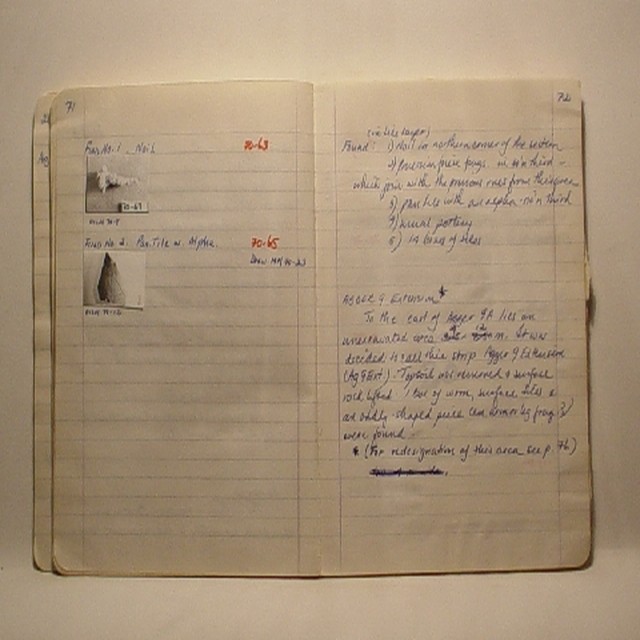 71
Find No. 1 Nail
70-63
70-67
Find No. 2. Pan Tile w. Alpha.
70-65
72
(in this layer)
Found: 1) Nail in northern corner of the section
2) fragments in third -
which join with the previous ones from the
3) pan tile with an alpha in third
4) usual pottery
5) 14 boxes of tiles
Agger 9 Extension *
To the east of Agger 9A lies an
unexcavated area m. It was
decided to call this strip Agger 9 Extension
(Ag 9 Ext). Topsoil was removed & surface
rock lifted. 1 box of worn, surface tiles &
an oddly-shaped piece (an frag?)
were found.
* (For redesignation of this area see p. 76)